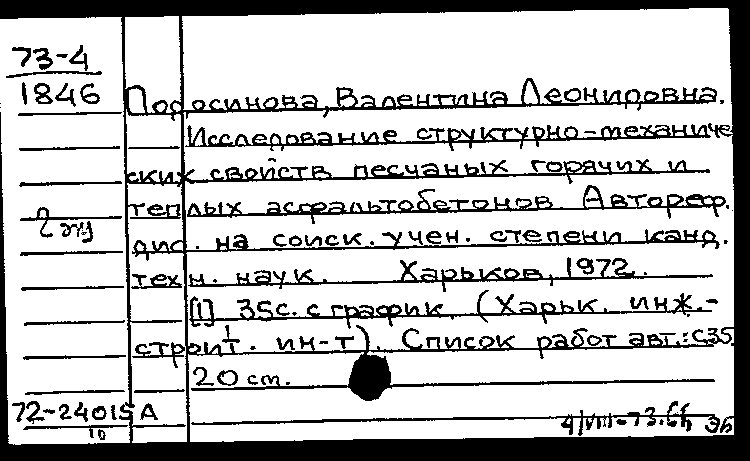 73-4
1846
Подосинова, Валентина Леонидовна.
Исследование структурно-механиче
ских свойств песчаных горячих и
теплых асфальтобетонов. Автореф.
дис. на соиск. учен. степени канд.
техн. наук. Харьков, 1972.
[1] 35с. с график. (Харьк. инж.-
строит. ин-т). Список работ авт.: с35
20 cm.
72-24015А
10
4/VIII-73.